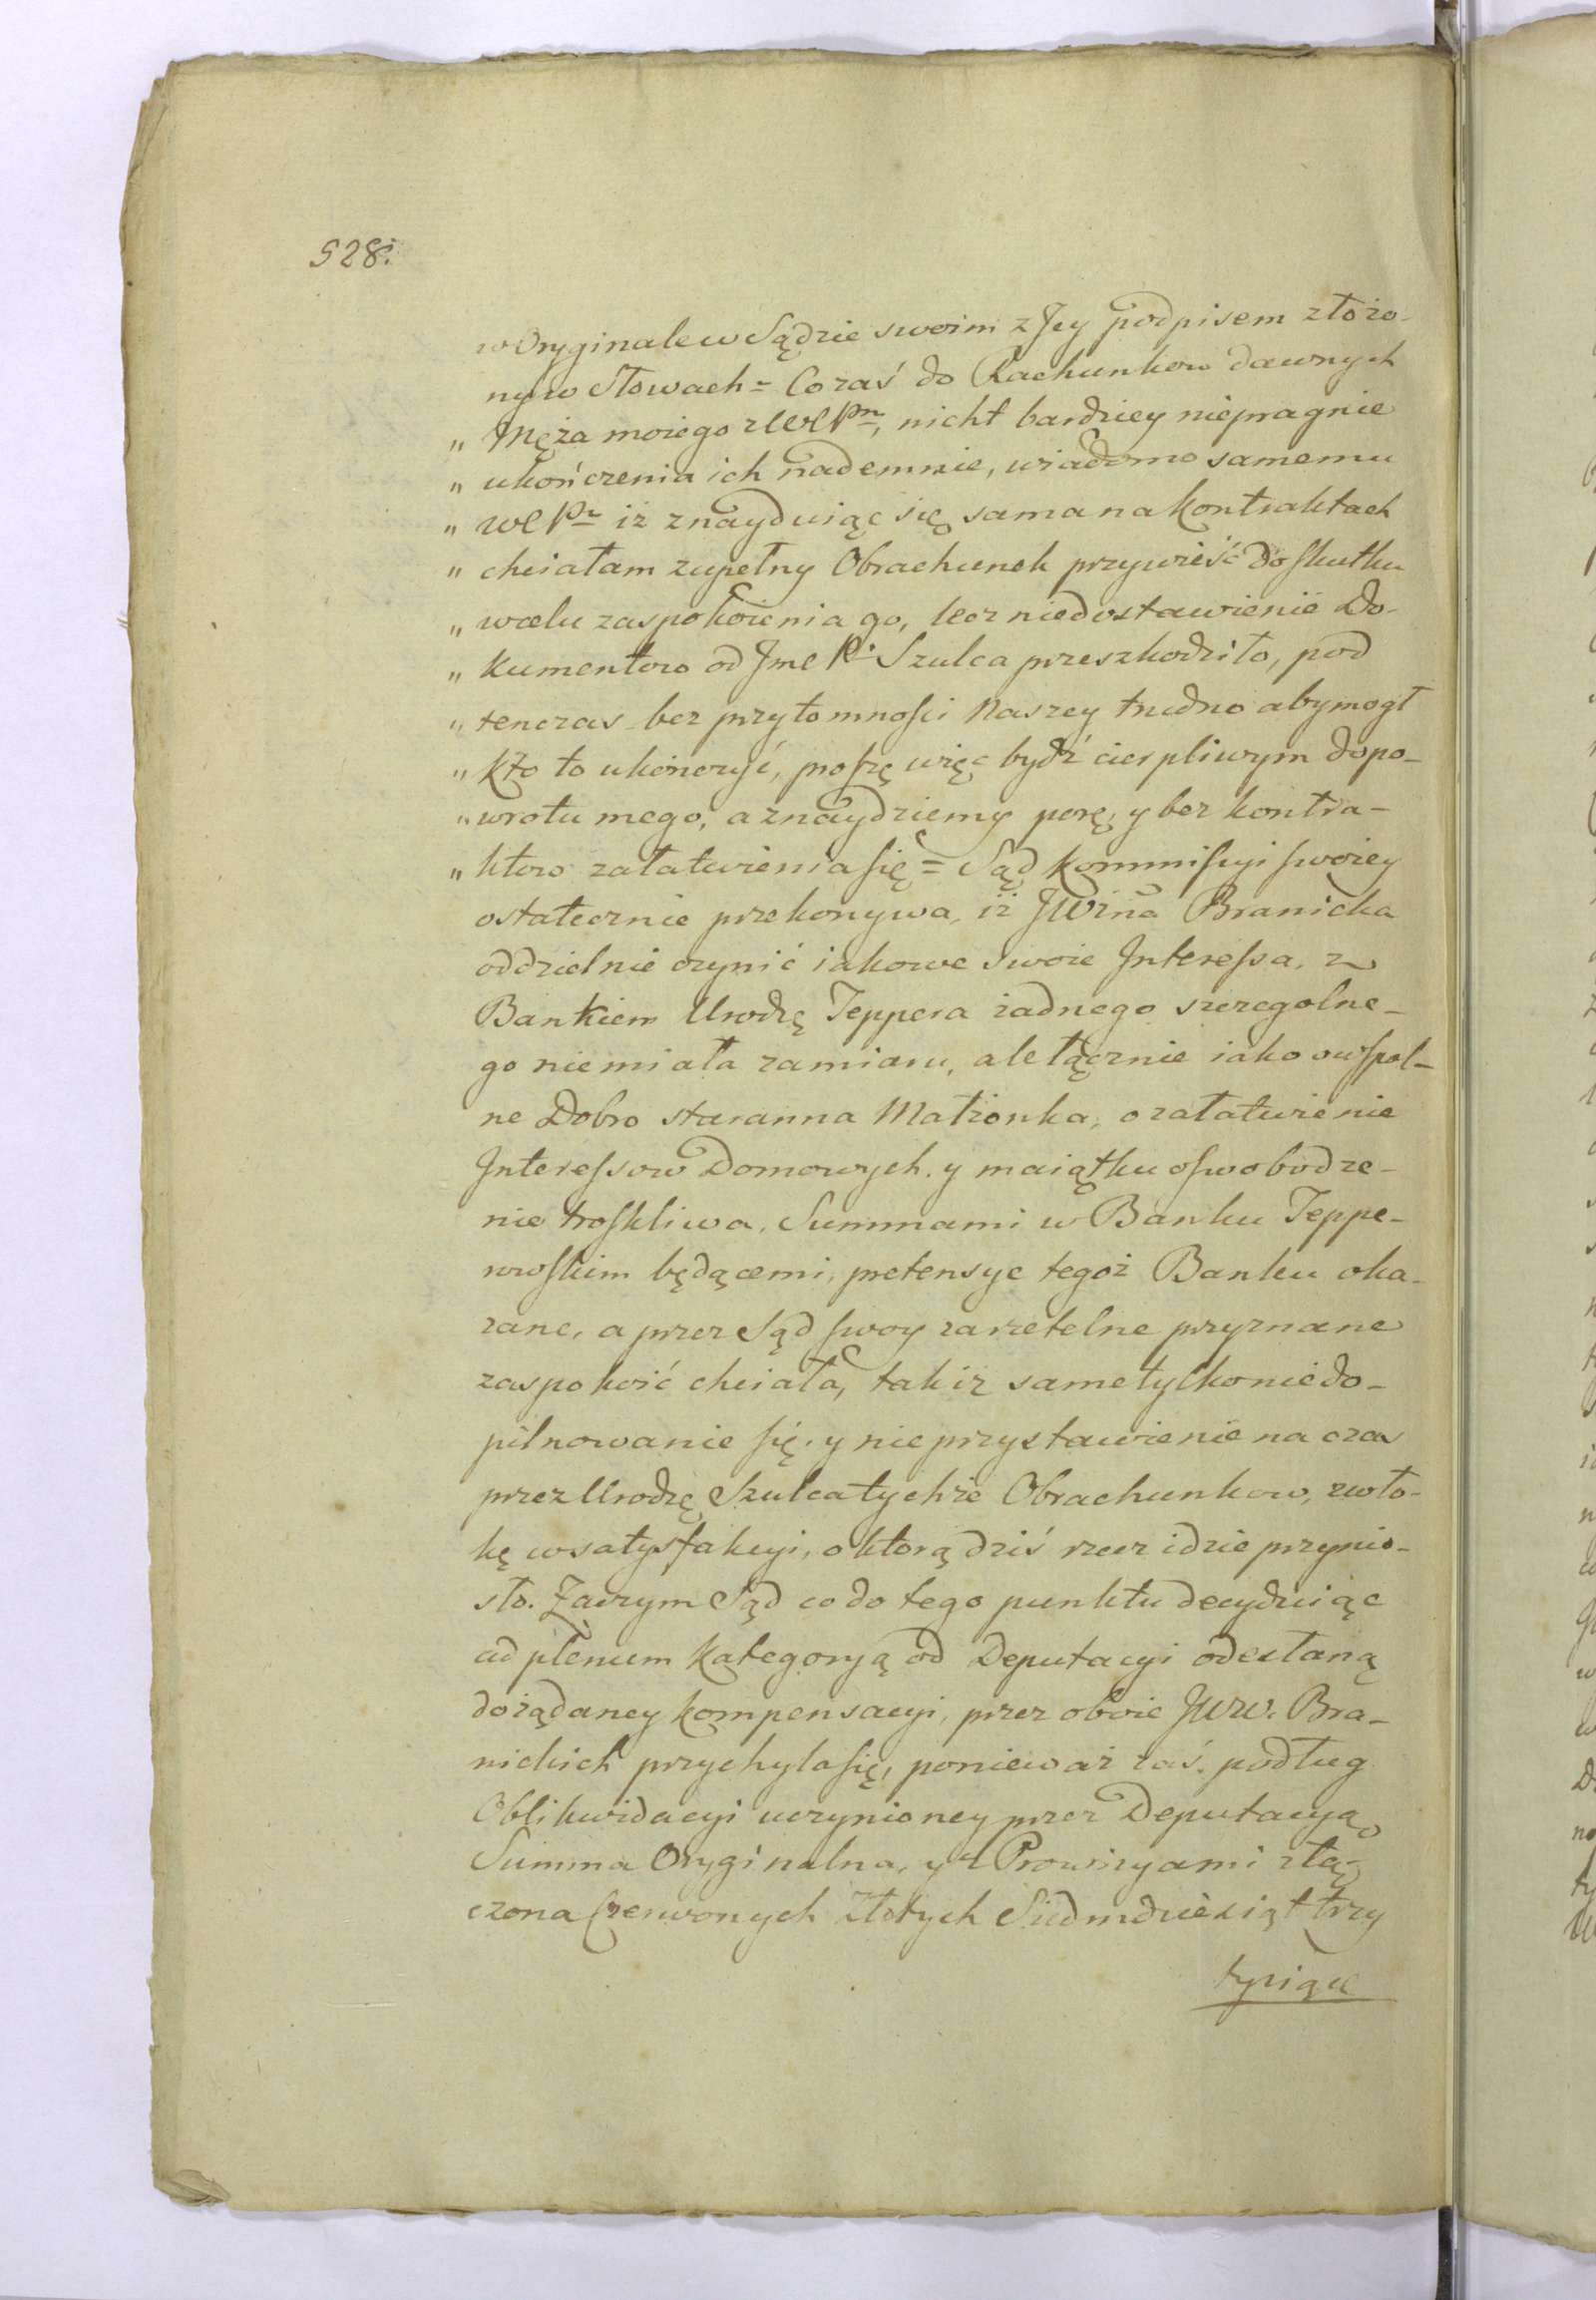 528.
w Oryginale w Sądzie swoim z Jey podpisem złożo-
ny w Słowach = Co zaś do Rachunkow dawnych
„ Męża moiego z WC Pn, nicht bardziey niepragnie
„ ukończenia ich nademnie, wiadomo samemu
„ WC Pn iż znayduiąc się sama na Kontraktach
„ chciałam zupełny Obrachunek przywieść do skutku
„ w celu zaspokoienia go, lecz niedostawienie Do-
„ kumentow od Jmc P. Szulca przeszkodziło, pod
„ tenczas bez przytomności Naszey trudno aby mogł
„ kto to ukończyć, proszę więc bydź cierpliwym do po-
„ wrotu mego, a znaydziemy porę, y bez kontra-
„ ktow załatwienia się = Sąd Kommissyi swoiey
ostatecznie przekonywa, iż JWżna Branicka
oddzielnie czynić iakowe swoie Interessa, z
Bankiem Urodzę Teppera żadnego szczegolne-
go niemiała zamiaru, ale łącznie iako o wspol-
ne Dobro staranna Małżonka, o załatwienie
Interessow Domowych y maiątku oswobodze-
nie troskliwa, Summami w Banku Teppe-
rowskim będącemi, pretensye tegoż Banku oka-
zane, a przez Sąd swoy za rzetelne przyznane
zaspokoić chciała, tak iż same tylko niedo-
pilnowanie się y nieprzystawienie na czas
przez Urodzę Szulca tychże Obrachunkow, zwło-
kę w satysfakcyi, o ktorą dziś rzecz idzie przynio-
sło. Zaczym Sąd co do tego punktu decyduiąc
ad plenum Kategoryą od Deputacyi odesłaną
do żądaney kompensacyi, przez oboie JWW. Bra-
nickich przychyla się, ponieważ zaś podług
Oblikwidacyi uczynioney przez Deputacyą
Summa Oryginalna, y z Prowizyami złą-
czona Czerwonych Złotych Siedmdziesiąt trzy
tysiące